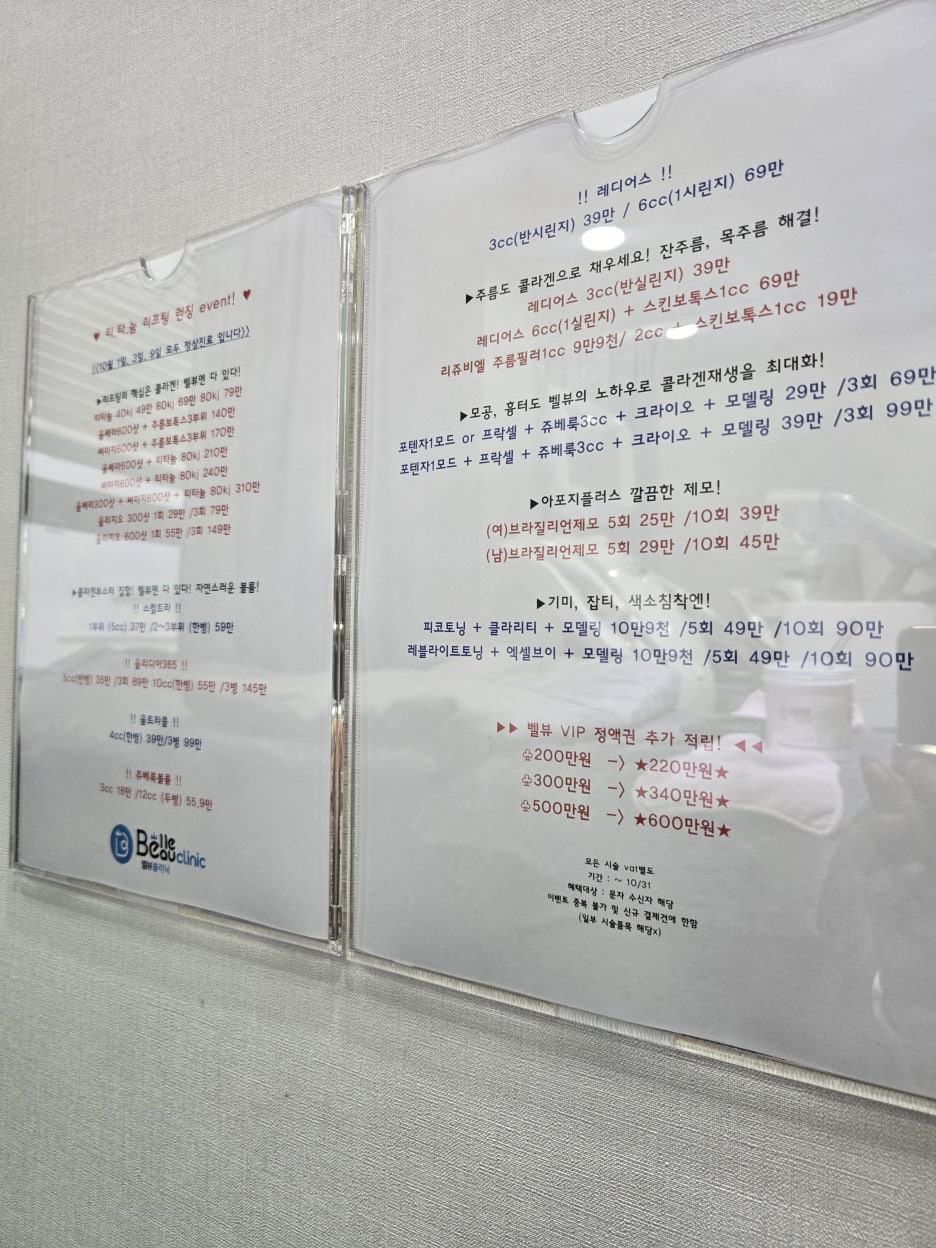 ♥ 티.타.늄 리프팅 런칭 event! ♥
<<10월 1일, 3일, 9일 모두 정상진료 입니다>>
▶리프팅의 핵심은 콜라겐! 벨뷰엔 다 있다!
티타늄 40kj 49만 60kj 69만 80kj 79만
울쎄라600샷 + 주름보톡스3부위 140만
써마지600샷 + 주름보톡스3부위 170만
울쎄라600샷 + 티타늄 80kj 210만
써마지600샷 + 티타늄 80kj 240만
울쎄라300샷 + 써마지600샷 + 티타늄 80kj 310만
올리지오 300샷 1회 29만 /3회 79만
올리지오 600샷 1회 55만 /3회 149만
▶콜라겐부스터 집합! 벨뷰엔 다 있다! 자연스러운 볼륨!
!! 스컬트라 !!
1부위 (5cc) 37만 /2~3부위 (한병) 59만
!! 올리디아365 !!
5cc(반병) 35만 /3회 89만 10cc(한병) 55만 /3병 145만
!! 울트라콜 !!
4cc(한병) 39만/3병 99만
!! 쥬베룩볼륨 !!
3cc 18만 /12cc (두병) 55.9만
Belle
Beau clinic
벨뷰클리닉
!! 레디어스 !!
3cc(반시린지) 39만 / 6cc(1시린지) 69만
▶주름도 콜라겐으로 채우세요! 잔주름, 목주름 해결!
레디어스 3cc(반실린지) 39만
레디어스 6cc(1실린지) + 스킨보톡스1cc 69만
리쥬비엘 주름필러1cc 9만9천/ 2cc + 스킨보톡스1cc 19만
▶모공, 흉터도 벨뷰의 노하우로 콜라겐재생을 최대화!
포텐자1모드 or 프락셀 + 쥬베룩3cc + 크라이오 + 모델링 29만 /3회 69만
포텐자1모드 + 프락셀 + 쥬베룩3cc + 크라이오 + 모델링 39만 /3회 99만
▶아포지플러스 깔끔한 제모!
(여)브라질리언제모 5회 25만 /10회 39만
(남)브라질리언제모 5회 29만 /10회 45만
▶기미, 잡티, 색소침착엔!
피코토닝 + 클라리티 + 모델링 10만9천 /5회 49만 /10회 90만
레블라이트토닝 + 엑셀브이 + 모델링 10만9천 /5회 49만 /10회 90만
▶▶ 벨뷰 VIP 정액권 추가 적립! ◀◀
♧200만원 -> ★220만원★
♧300만원 -> ★340만원★
♧500만원 -> ★600만원★
모든 시술 vat별도
기간 : ~ 10/31
혜택대상 : 문자 수신자 해당
이벤트 중복 불가 및 신규 결제건에 한함
(일부 시술품목 해당x)